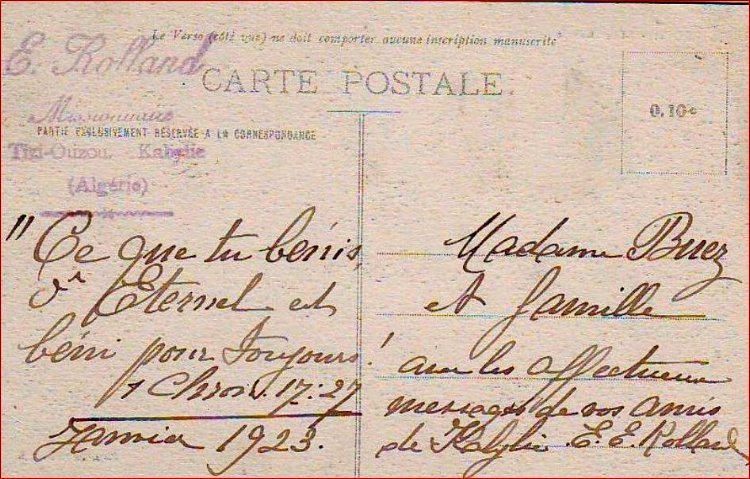 Le Verso (côté vue) ne doit comporter aucune inscription manuscrite
E. Rolland
CARTE POSTALE.
0,10c
Missionnaire
PARTIE EXCLUSIVEMENT RÉSERVÉE A LA CORRESPONDANCE
Tizi-Ouzou, Kabylie
(Algérie)
"Ce que tu bénis,
ô Eternel est
béni pour toujours!
1 Chron. 17:27
Janvier 1923.
Madame Buez
et famille
avec les affectueux
messages de vos amis
de Kabylie. E. E. Rolland